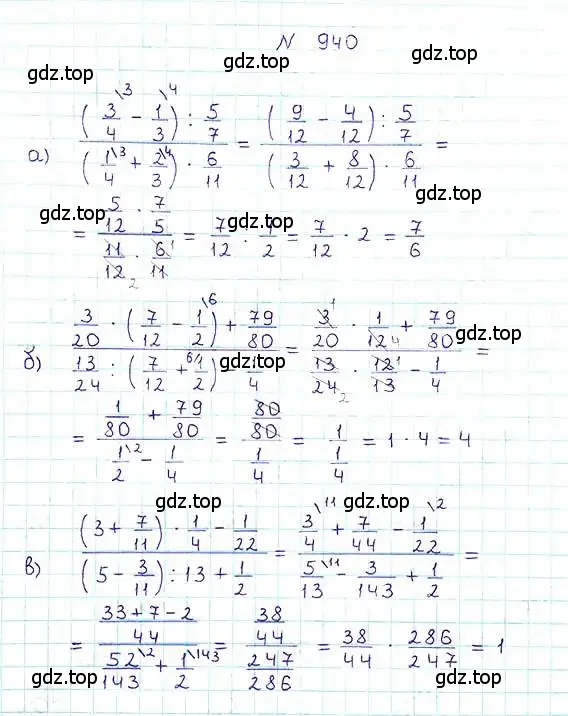 N 940
gdz.top gdz.top
а) ((3/4 \3 - 1/3 \4) : 5/7) / ((1/4 \3 + 2/3 \4) · 6/11) = ((9/12 - 4/12) : 5/7) / ((3/12 + 8/12) · 6/11) =
gdz.top gdz.top
= (5/12 · 7/5) / (11/12 2 · 6 1/11) = 7/12 : 1/2 = 7/12 · 2 = 7/6
gdz.top gdz.top
б) (3/20 · (7/12 - 1/2 \6) + 79/80) / (13/24 : (7/12 + 6/1/2) - 1/4) = (3 1/20 · 1/12 4 + 79/80) / (13/24 2 · 12 1/13 - 1/4) =
gdz.top gdz.top
= (1/80 + 79/80) / (1/2 \2 - 1/4) = (80/80) / (1/4) = 1 / (1/4) = 1 · 4 = 4
gdz.top gdz.top
в) ((3 + 7/11) · 1/4 - 1/22) / ((5 - 3/11) : 13 + 1/2) = (3/4 \11 + 7/44 - 1/22 \2) / (5/13 \11 - 3/143 + 1/2) =
gdz.top gdz.top
= ((33 + 7 - 2)/44) / (52/143 \2 + 1/2 \143) = (38/44) / (247/286) = 38/44 · 286/247 = 1
gdz.top gdz.top